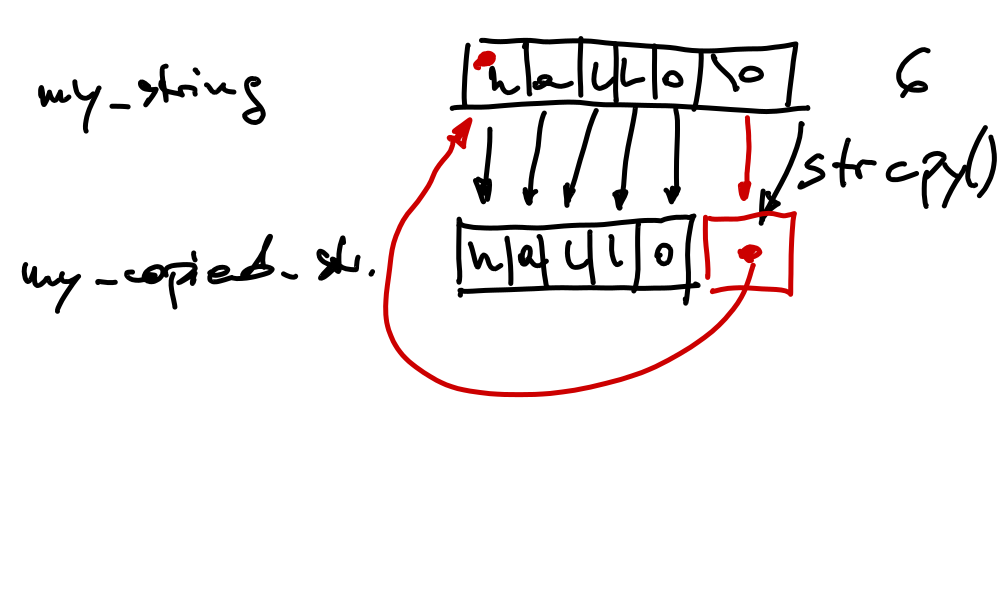 my_string h a l l o \0 6
strcpy()
my_copied_str. h a l l o